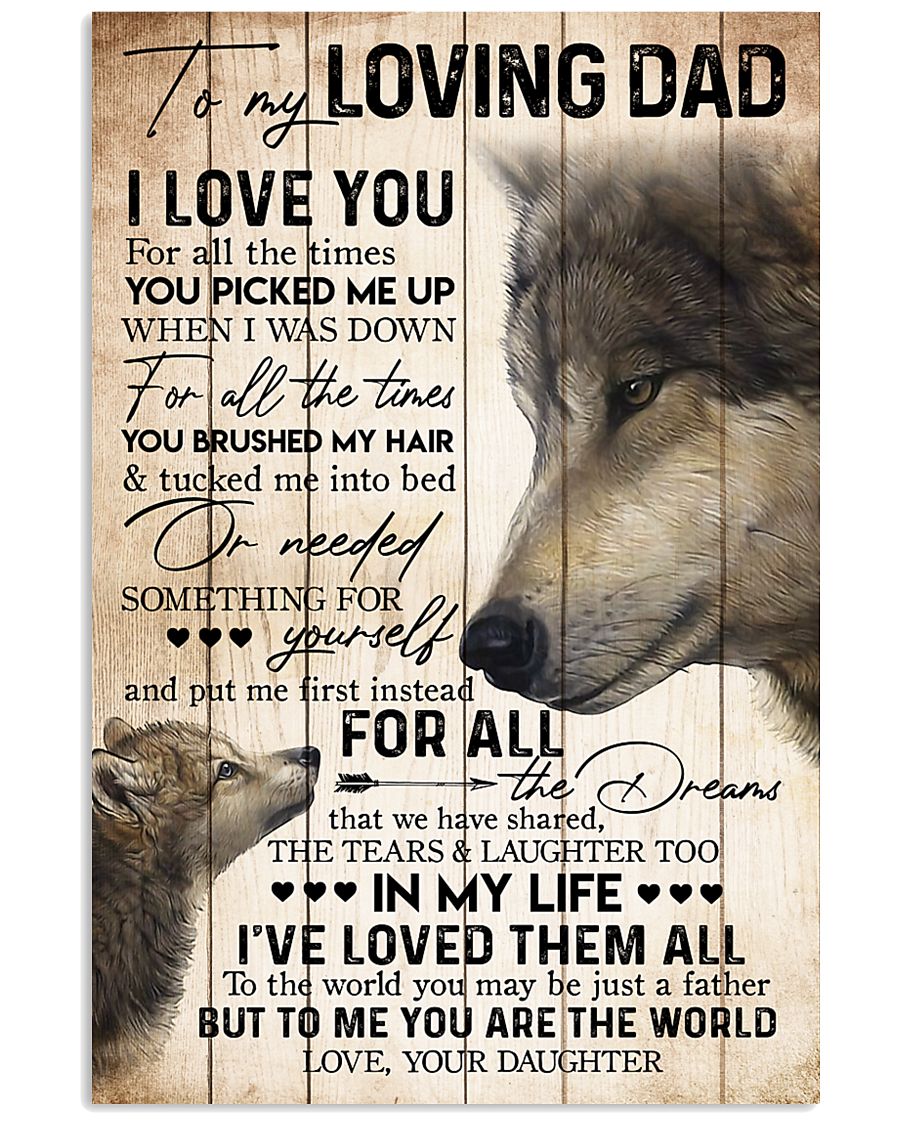 To my LOVING DAD
I LOVE YOU
For all the times
YOU PICKED ME UP
WHEN I WAS DOWN
For all the times
YOU BRUSHED MY HAIR
& tucked me into bed
Or needed
SOMETHING FOR
yourself
and put me first instead
FOR ALL
the Dreams
that we have shared,
THE TEARS & LAUGHTER TOO
IN MY LIFE
I'VE LOVED THEM ALL
To the world you may be just a father
BUT TO ME YOU ARE THE WORLD
LOVE, YOUR DAUGHTER